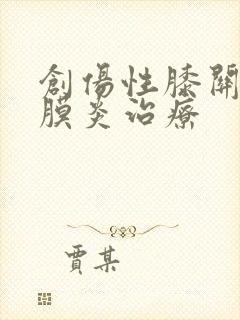 創傷性膝關
膜炎治療
賈某